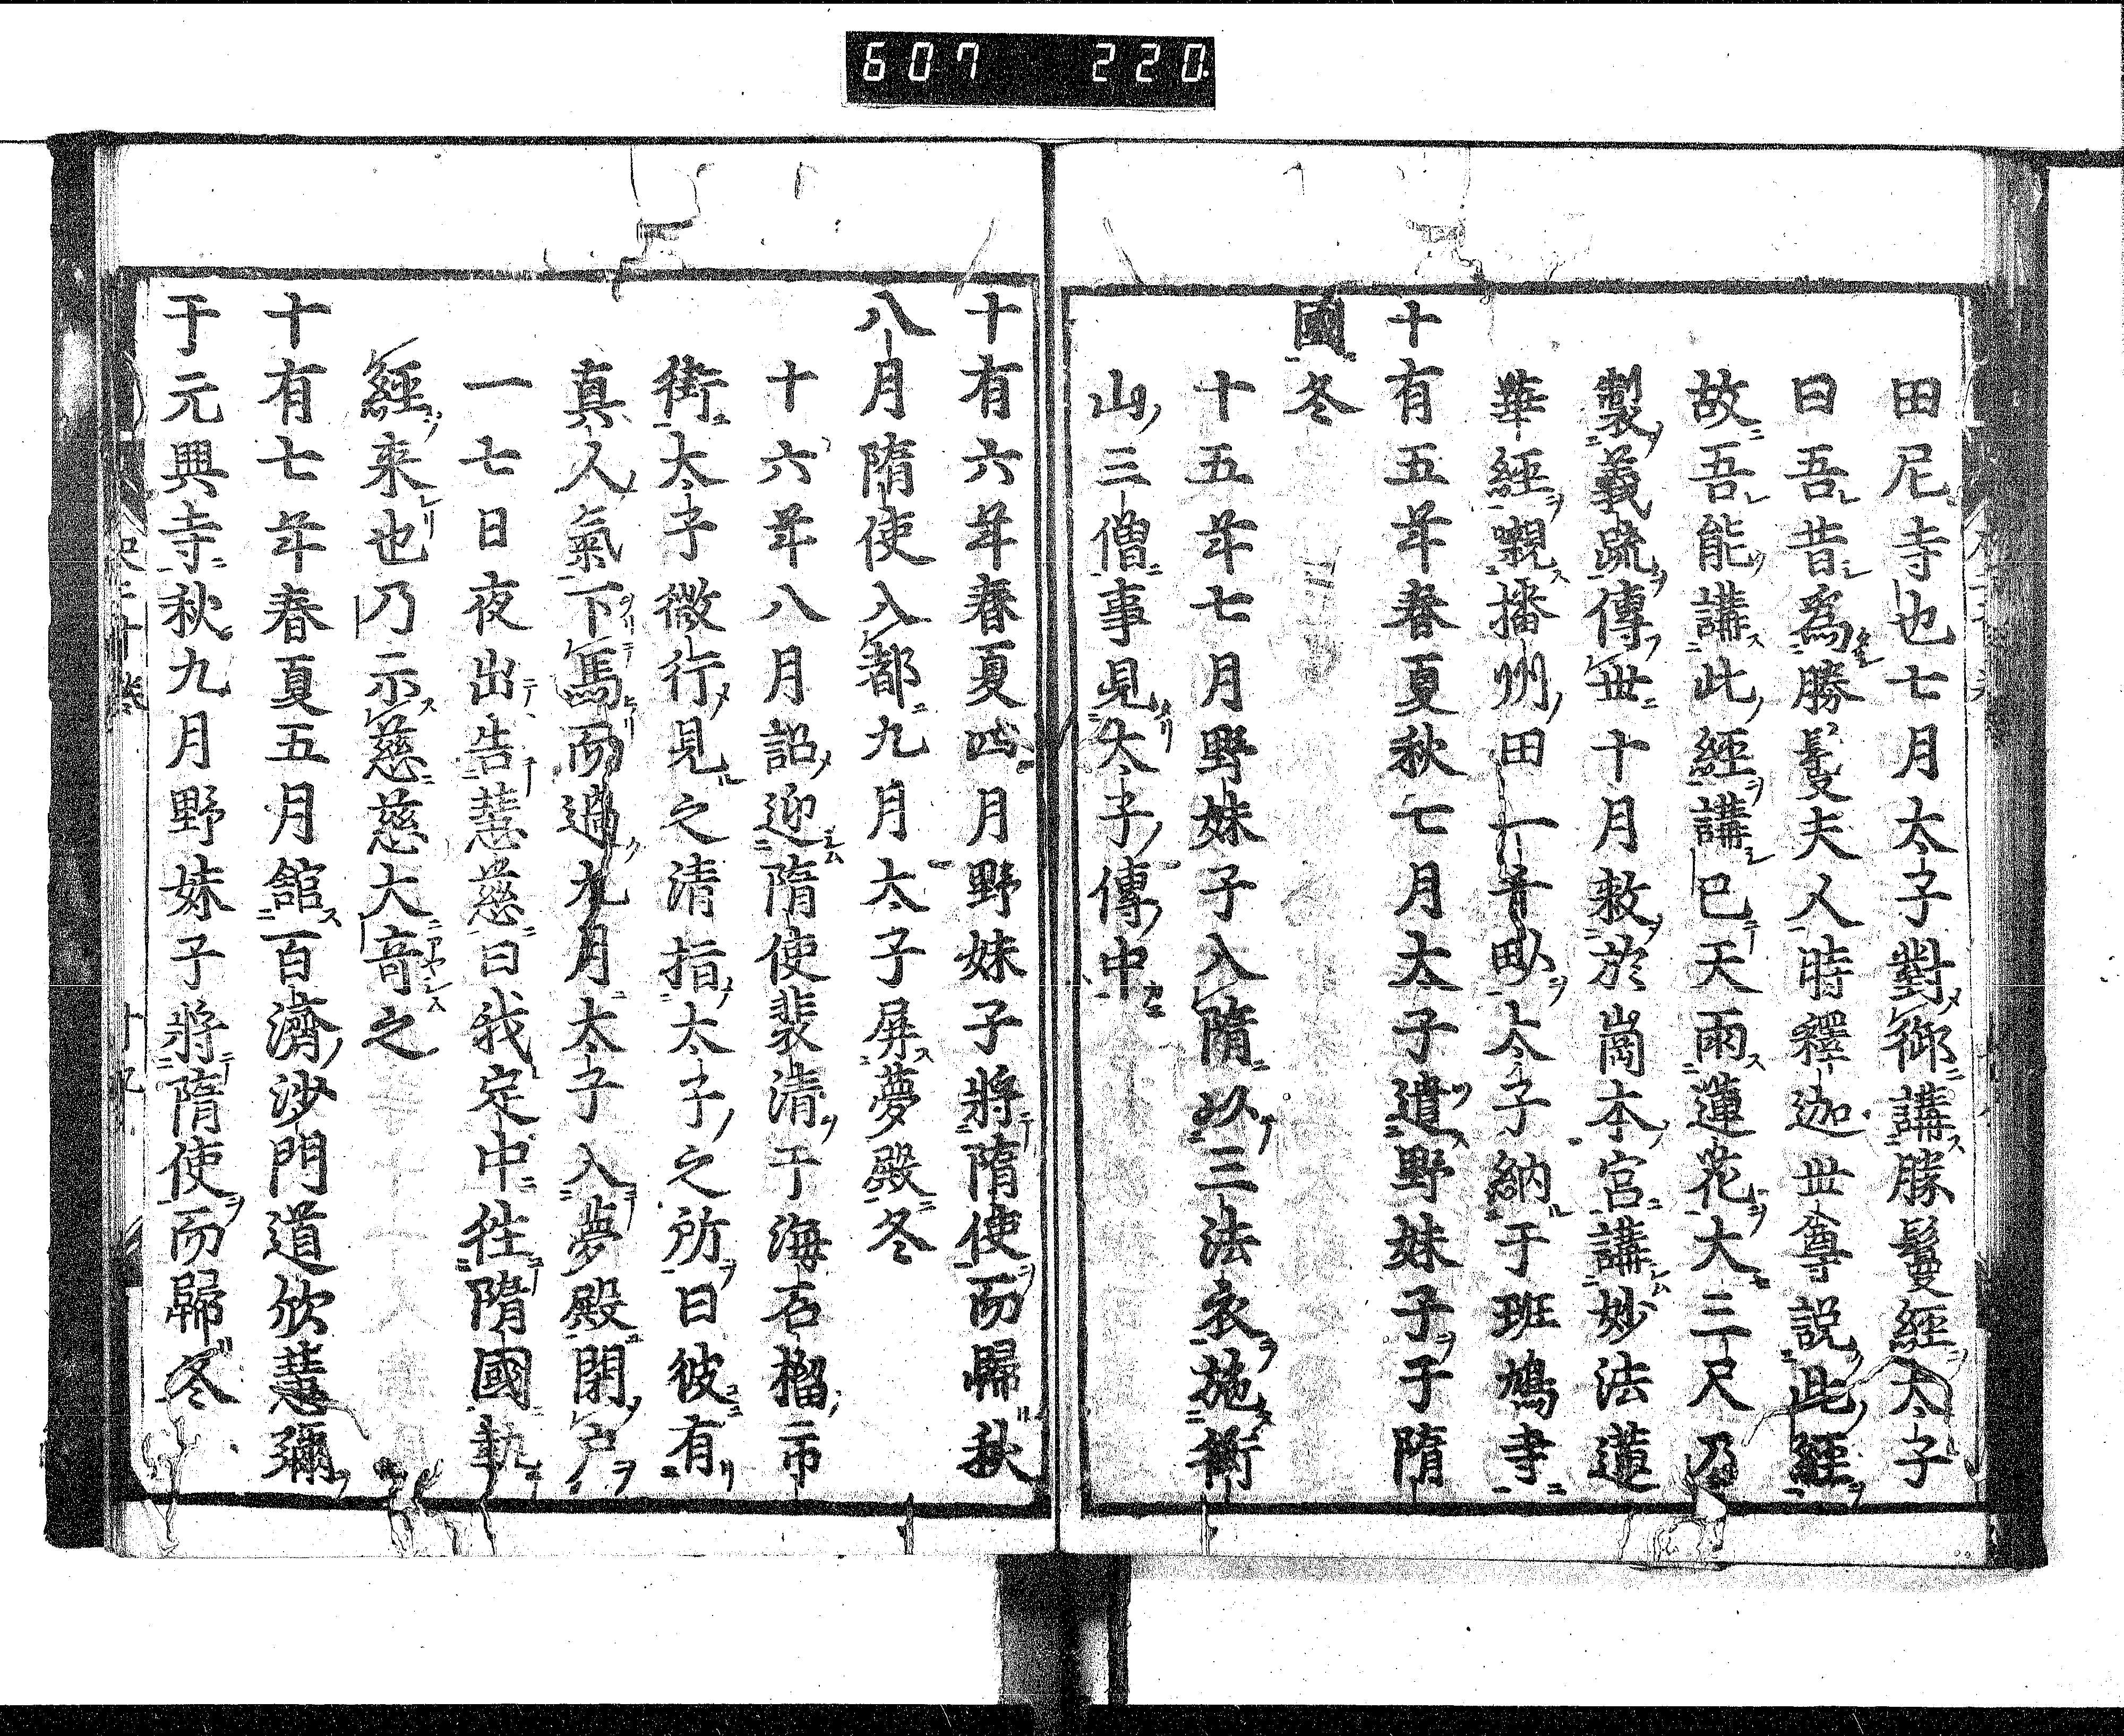 607 220.
田尼寺也七月太子對御講勝鬘經太子
曰吾昔爲勝鬘夫人時釋迦世尊説此經
故吾能講此經講已天雨蓮花大三尺乃
製義疏傳世十月敕於崗本宮講妙法蓮
華經䞋播州田一百畝太子納于班鳩寺
十有五年春夏秋七月太子遣野妹子于隋
國冬
十五年七月野妹子入隋以三法衣施衡
山三僧事見太子傳中
十有六年春夏四月野妹子將隋使而歸秋
八月隋使入都九月太子屏夢殿冬
十六年八月詔迎隋使裴清于海石榴市
街太子微行見之清指太子之所曰彼有
真人氣下馬而過九月太子入夢殿閉户
一七日夜出告慧慈曰我定中徃隋國執
經来也乃示慈慈大竒之
十有七年春夏五月舘百濟沙門道欣慧彌
于元興寺秋九月野妹子將隋使而歸冬